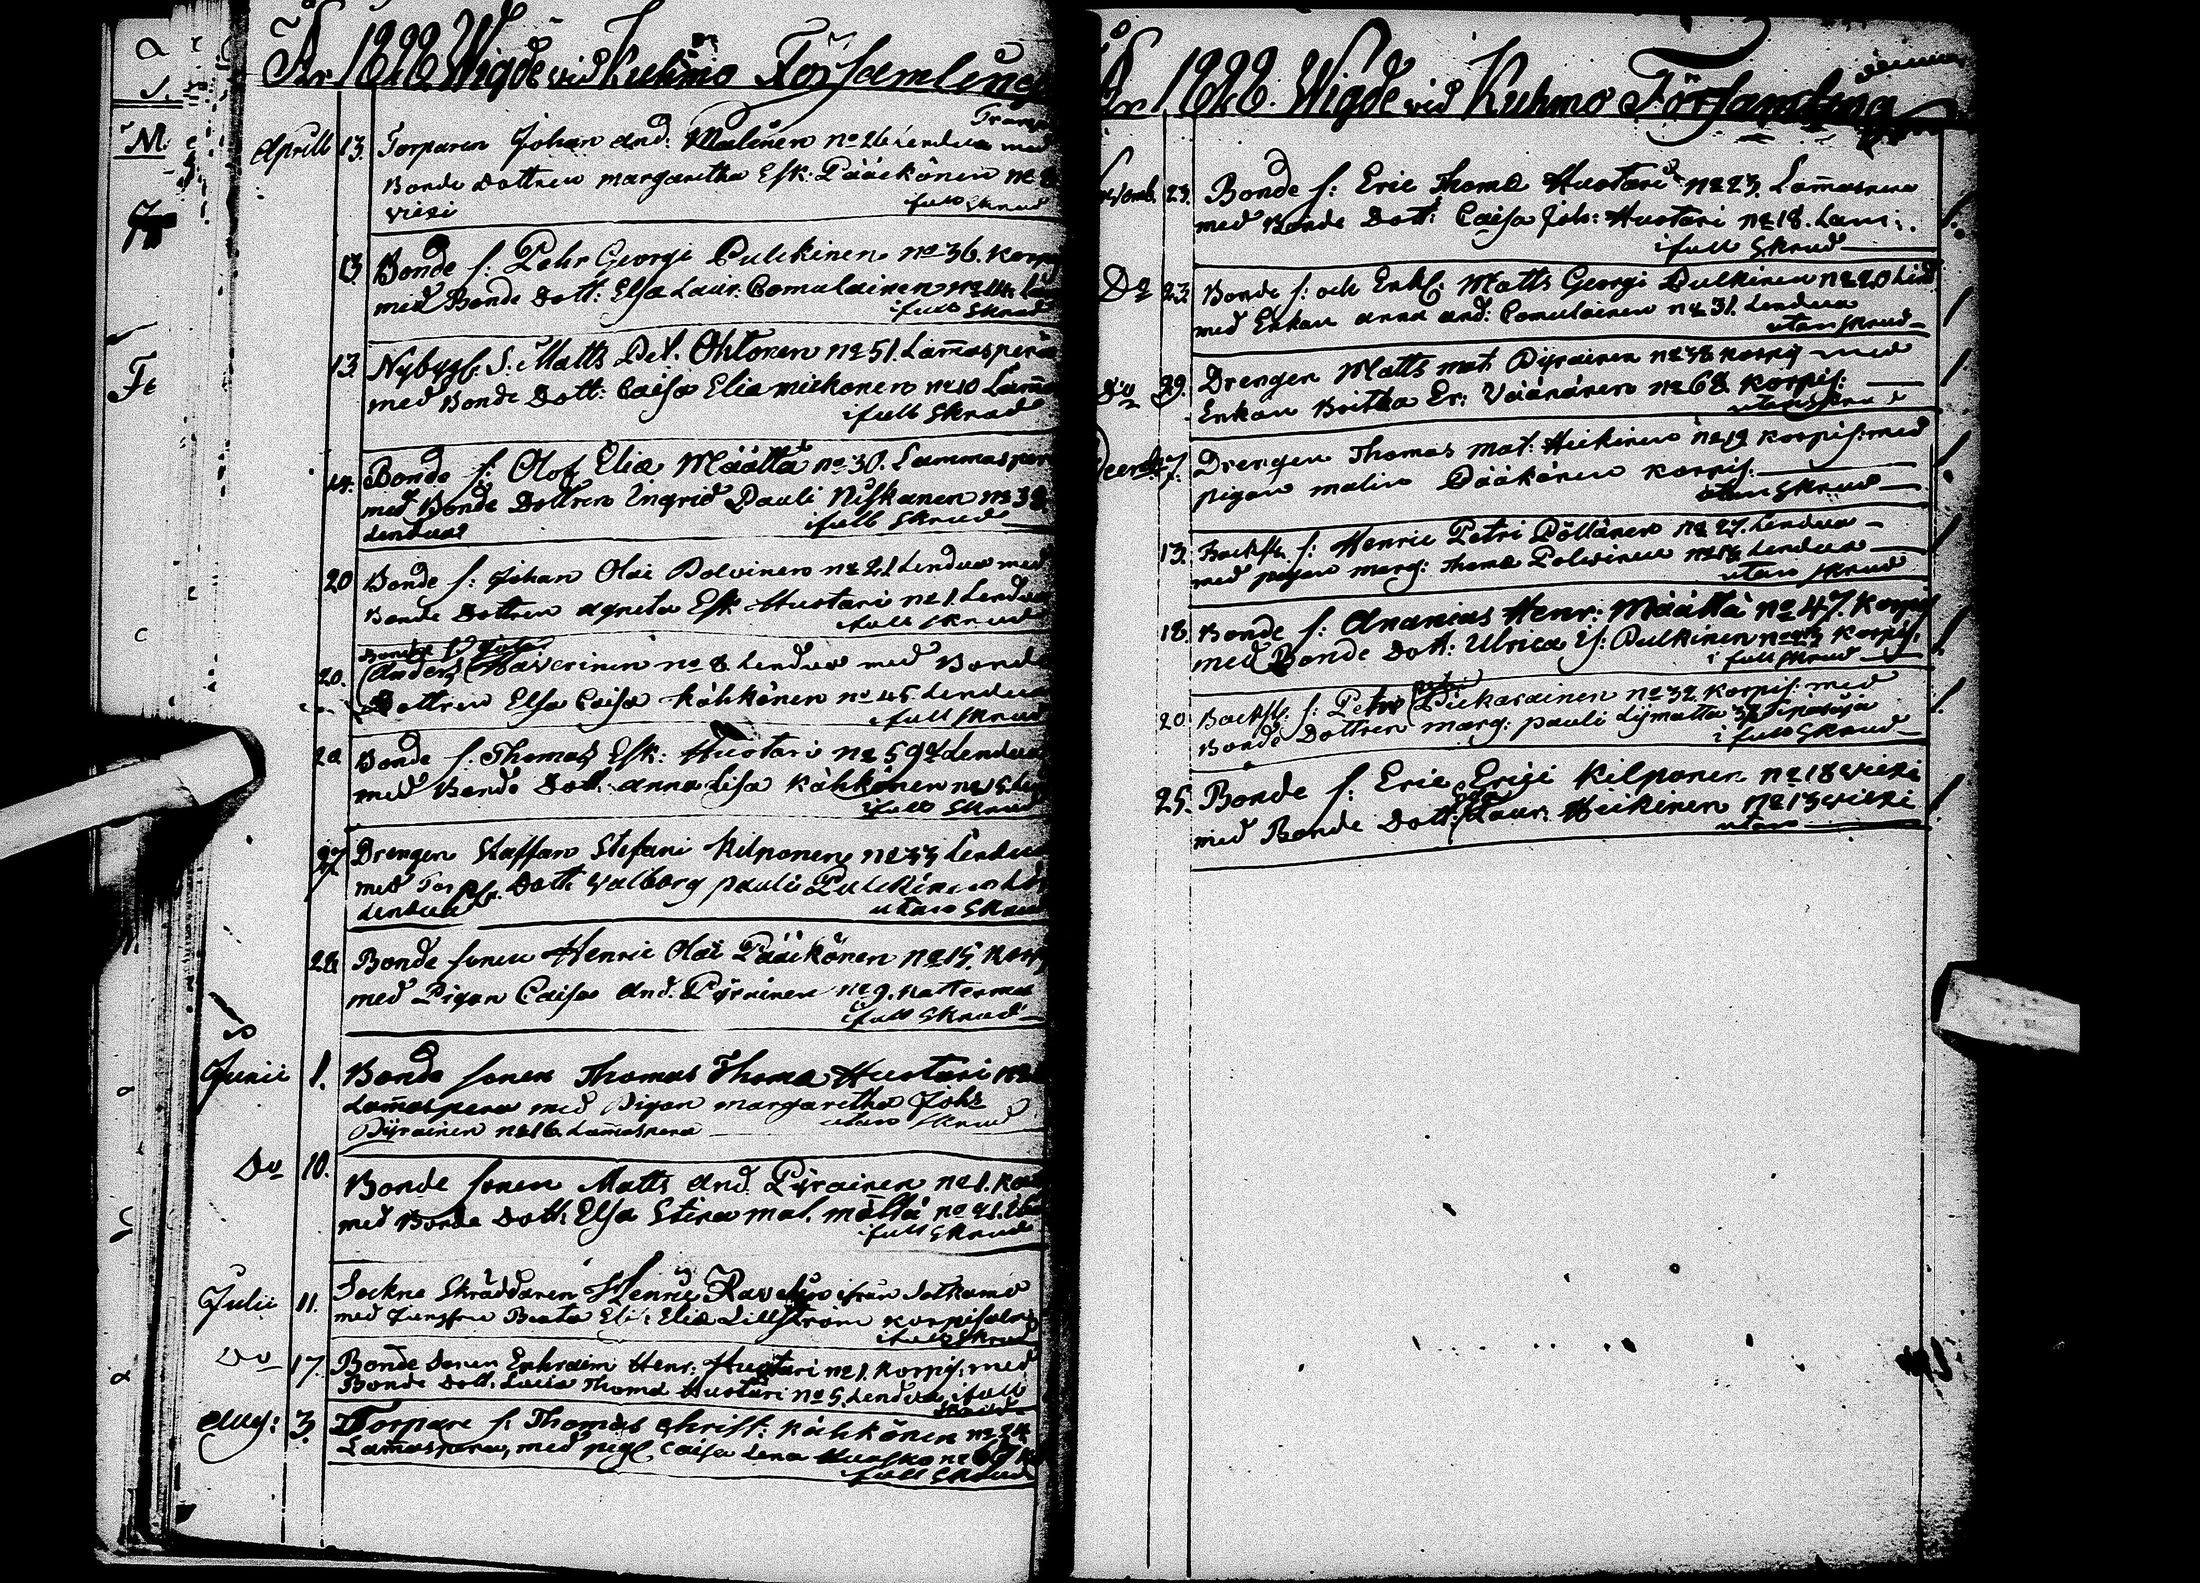 År 1822 Wigde vid Kuhmo Församling
Aprill 13. Torparen Johan And: Malinen No 26 Lendua med
Bonde Dottren Margaretha Esk: Pääckönen No
Viexi i full Skrud
13. Bonde S: Pehr Georgi Pulckinen No 36. Korp
med Bonde Dott: Elsa Laur: Comulainen No
i full Skrud
13 Nybygg: S: Matts Pet. Ohtonen No 51. Lam̄asperä
med Bonde Dott: Caisa Eliæ Mickonen No 10 Lam̄
i full Skrud
14. Bonde S: Olof Eliæ Määttä No 30. Lammasper
med Bonde Dottren Ingrid Pauli Niskanen No 39.
Lendua i full Skrud
20 Bonde S: Johan Olai Polvinen No 21 Lendua med
Bonde Dottren Agneta Esk: Huotari No 1. Lendua
i full Skrud
Bonde
20. Anders Haverinen No 8 Lendua med Bonde
Dottren Elsa Caisa Kähkönen No 45. Lendua
i full Skrud
20 Bonde S. Thomas Esk: Huotari No 59 Lendua
med Bonde Dott. Anna Lisa Kähkönen No 15
i full Skrud
27 Drengen Staffan Stefani Kilponen No 33 Lendua
med Torp: Dott: Valborg Pauli Pulckinen
Lendua utan Skrud
28 Bonde Sonen Henric Olai Pääckönen No 15. Korp
med Pigan Caisa And: Pyrainen No 9. Katterma
i full Skrud
Junii 1. Bonde Sonen Thomas Thomæ Huotari No
Lam̄aspera med Pigan Margaretha Joh:
Pyrainen No 16. Lam̄aspera utan Skrud
Do 10. Bonde Sonen Matts And: Pyrainen No 1. Kat
med Bonde Dott: Elsa Stina Mat. Mättä No 21.
i full Skrud
Julii 11. Sockne Skräddaren Henric Ravelin ifrån Sotkamo
med Jungfru Beata Eliæ Lillström Korpisalmi
i full Skrud
Do 17. Bonde Sonen Ephraim Henr: Huotari No 1. Korpis: med
Bonde Dott. Lovisa Thomæ Huotari No 5. Lendua i full
Skrud
Aug: 3. Torpare S: Thomas Christ: Kähkönen No 24
Lam̄aspera, med pig: Caisa Lena Hursko No 69
i full Skrud
År 1822. Wigde vid Kuhmo Församling
23. Bonde S: Eric Thomæ Huotari No 23. Lam̄aspera
med Bonde Dott: Caisa Joh: Huotari No 18. Lam:
i full Skrud
Do 23. Bonde S: och Enkl: Matts Georgi Pulkinen No 20
med Enkan Anna And: Comulainen No 31. Lendua
utan Skrud
Do 29. Drengen Matts Mat. Pyrainen No 38 Korpi med
Enkan Britha Er: Väänänen No 68 Korpis:
utan Skrud
7. Drengen Thomas Mat: Heikinen No 19 Korpis: med
Pigan Malin Pääkönen Korpis:
utan Skrud
13. Backst: S: Henric Petri Pöllänen No 27. Lendua
med Pigan Marg: Thomæ Polvinen No Lendua
utan Skrud
18. Bonde S: Ananias Henr: Määttä No 47. Korpis
med Bonde Dott: Ulrica Is: Pulkinen No Korpis.
i full Skrud
20. Backst: S: Petr Pickarainen No 32 Korpis: med
Bonde Dottren Marg: Pauli Lymatta
i full Skrud
25. Bonde S: Eric Erici Kilponen No 18 Viexi
med Bonde Dott: Laur: Heikinen No 13 Viexi
utan